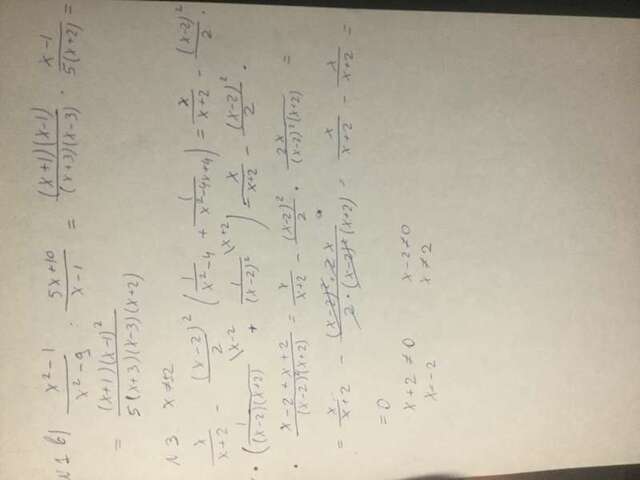 №1 в) (x²-1)/(x²-9) : (5x+10)/(x-1) = ((x+1)(x-1))/((x+3)(x-3)) · (x-1)/(5(x+2)) =
= ((x+1)(x-1)²)/(5(x+3)(x-3)(x+2))
№3. x≠±2
x/(x+2) - (x-2)²/2 (1/(x²-4) + 1/(x²-4x+4)) = x/(x+2) - (x-2)²/2 ·
· (1/((x-2)(x+2)) \x-2 + 1/(x-2)² \x+2) = x/(x+2) - (x-2)²/2 ·
· (x-2+x+2)/((x-2)²(x+2)) = x/(x+2) - (x-2)²/2 · 2x/((x-2)²(x+2)) =
= x/(x+2) - ((x-2)²·2x)/(2·(x-2)²(x+2)) = x/(x+2) - x/(x+2) =
= 0
x+2≠0 x-2≠0
x=-2 x≠2